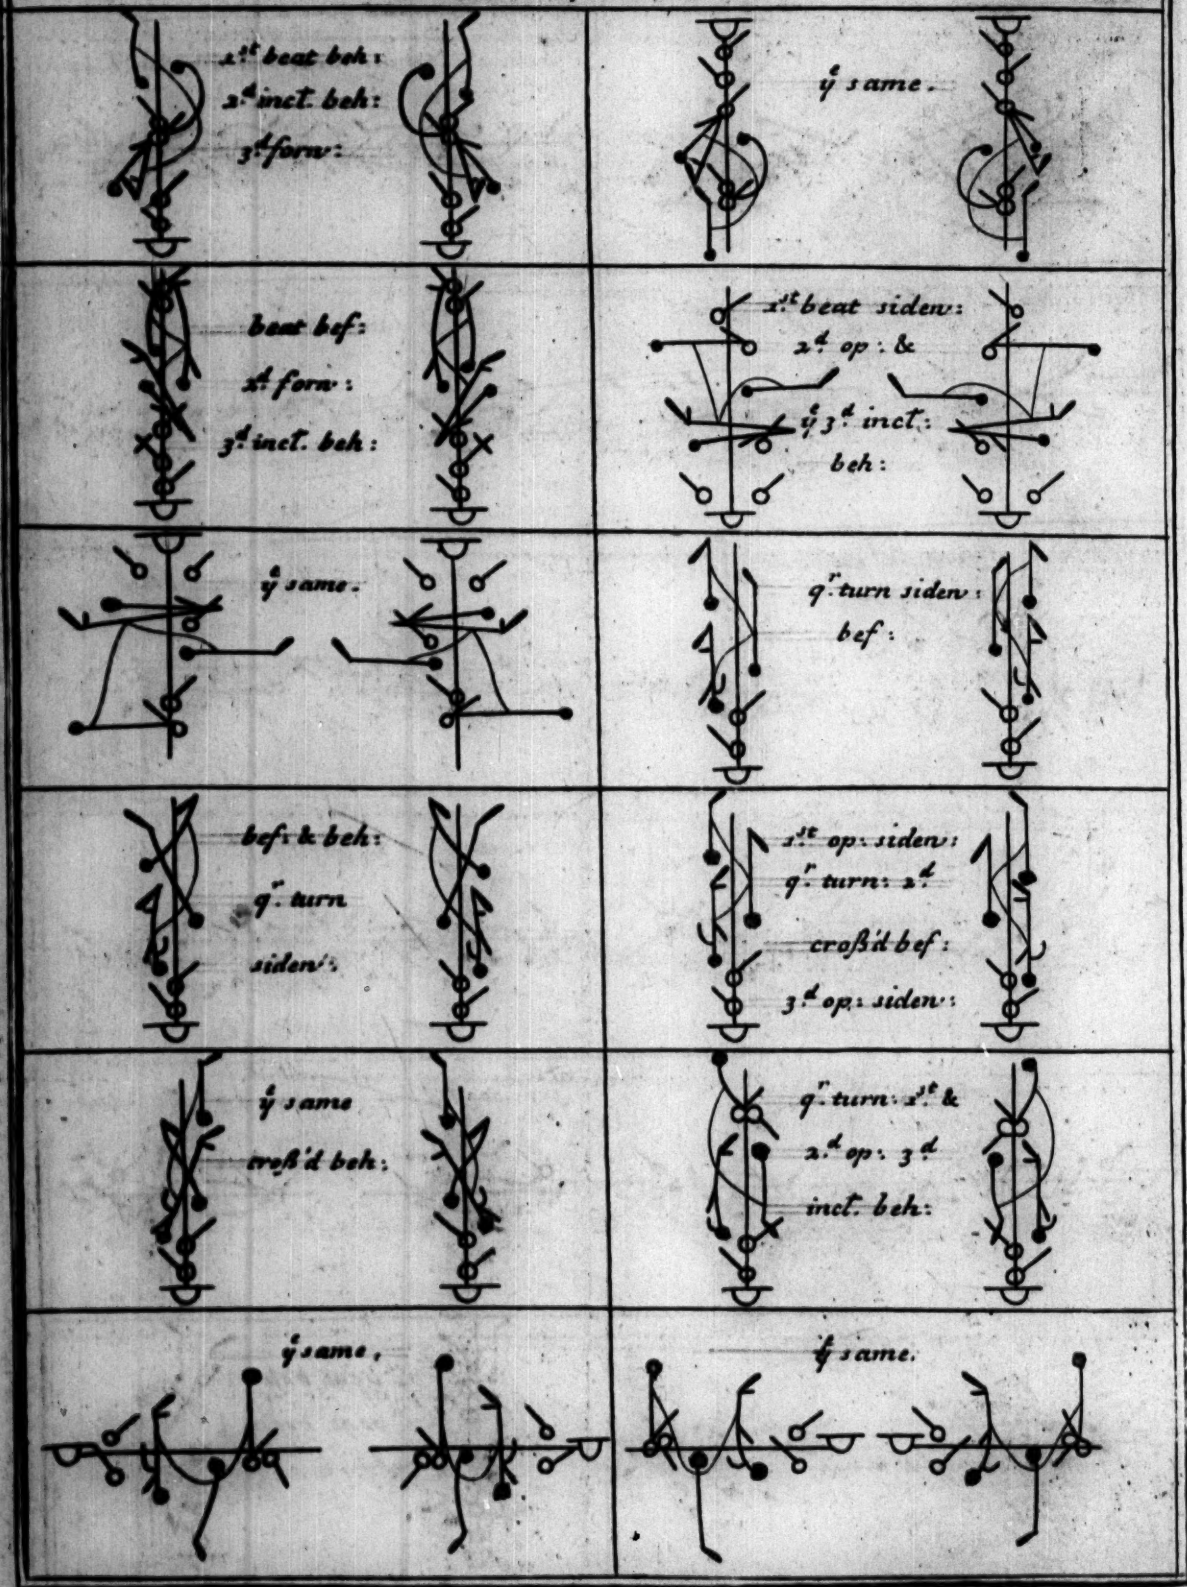 1st beat beh:
2d inct. beh:
3d forw:
ye same.
beat bef:
2d forw:
3d inct. beh:
1st beat siden:
2d op: &
ye 3d inct:
beh:
ye same.
qr turn siden:
bef:
bef: & beh:
qr turn
siden:
1st op: siden:
qr turn: 2d
croß'd bef:
3d op: siden:
ye same
croß'd beh:
qr turn: 1st &
2d op: 3d
inct. beh:
ye same.
ye same.